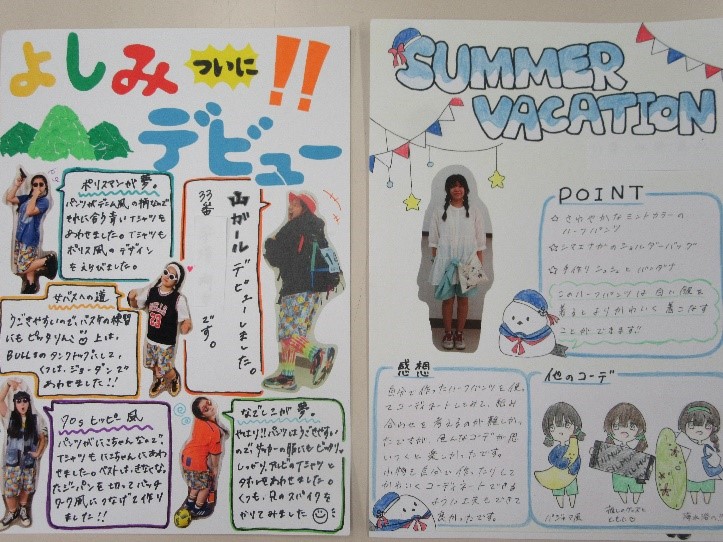 よしみ
ついに
!!
デビュー
ポリスマンが夢。
パンツがデニム風の柄なので
それに合う青いTシャツも
あわせました。Tシャツも
ポリス風のデザイン
をえらびました。
山ガールデビューしました。
33番
です。
女バスへの道
うごきやすいので、バスケの練習
にもピッタリんこ
上は、
BULLSのタンクトップにして、
くつは、ジョーダンで
あわせました!!
70sヒッピー風
パンツがにこちゃんなので、
Tシャツもにこちゃんにあわ
せました。ベストは、きなくな
たジーパンを切ってパッチ
ワーク風につなげて作り
ました!!
なでしこが夢。
やはり!!パンツはうごきやすい
ので、サッカーの服にもピッタリ。
しっかり、アルビのTシャツと
タオルをあわせました。
くつも、兄のスパイクを
かりてみました
SUMMER
VACATION
POINT
☆ さわやかなミントカラーの
ハーフパンツ
☆ シマエナガのショルダーバッグ
☆ 手作りシュシュと
このハーフパンツは白い服を
着るとよりかわいく着こなす
ことができます!!
感想
自分で作ったハーフパンツを使っ
てコーディネートしてみて、組み
合わせを考えるのが難しかっ
たですが、色んなコーデが思
いつくと楽しかったです。
小物を自分で作ったりして
かわいくコーディネートできる
ように工夫もできて
良かったです。
他のコーデ
パジャマ風
推しのグッズと
ともに
海水浴へ!!